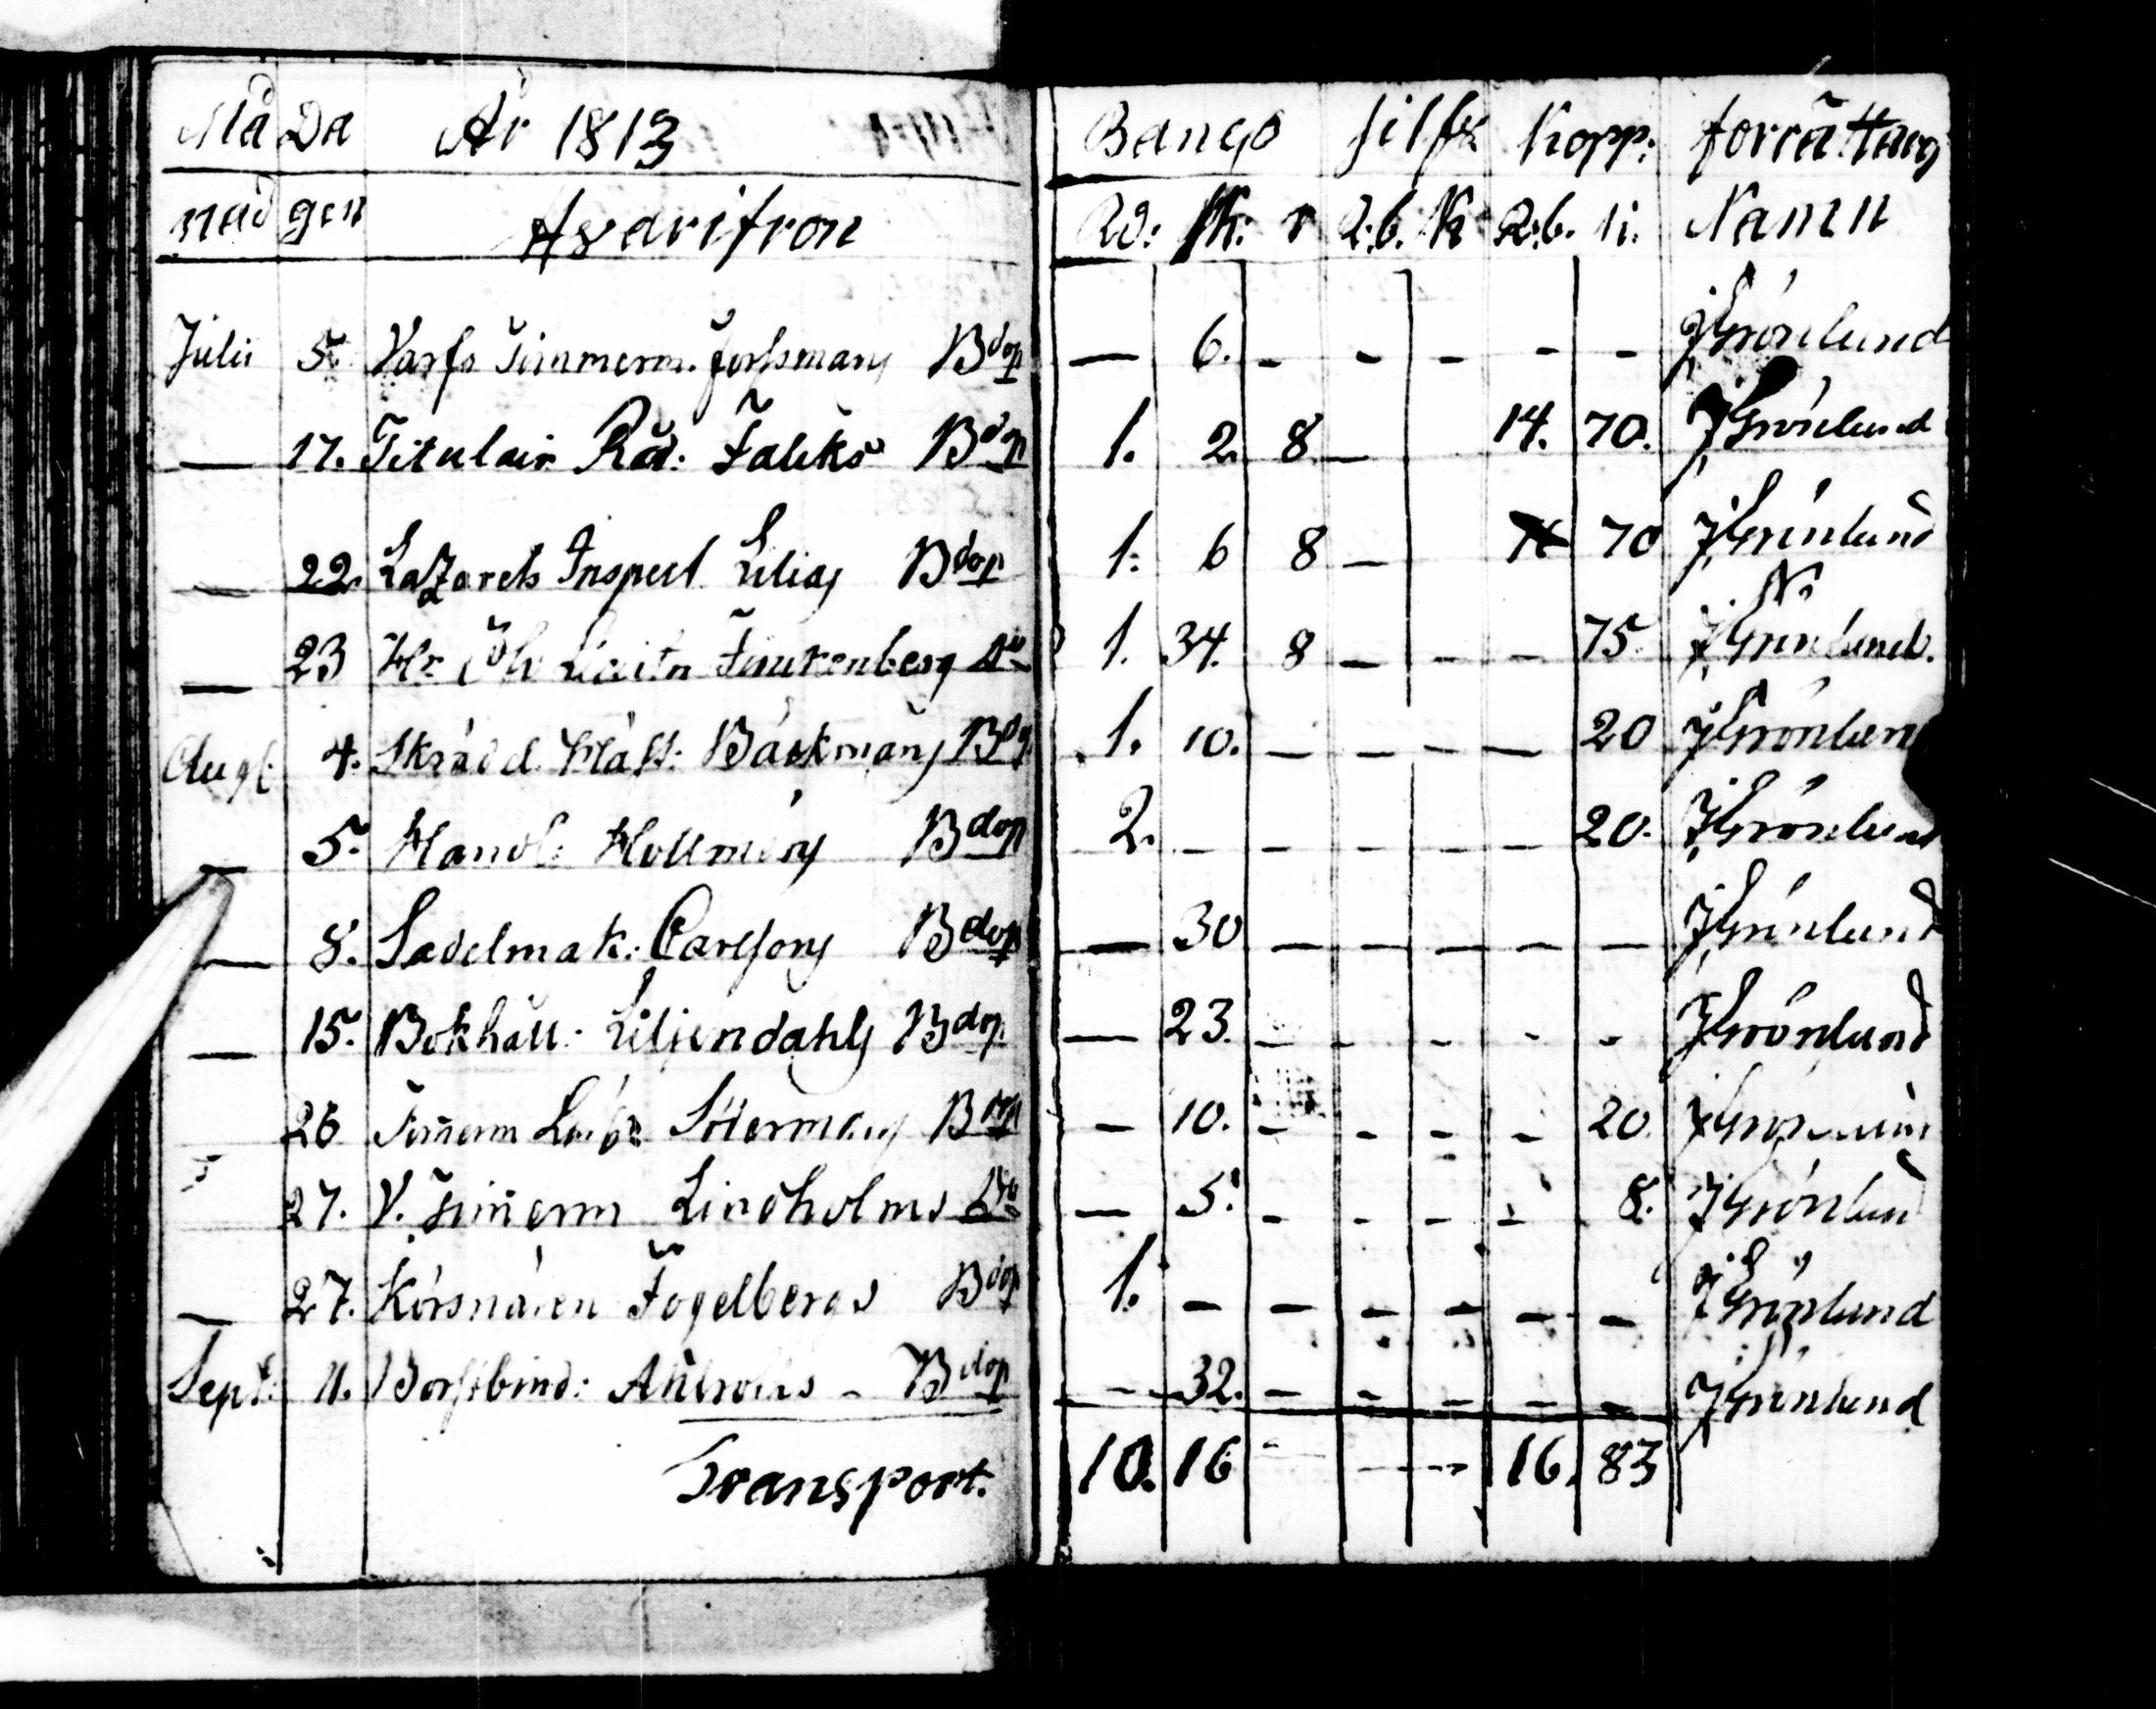 Må Da År 1813 Banco silfr Kopp: förrättarns
nad gen Rd: sk: r R:b. K R:b. k. Namn
Julii 5. Varfs Timmerm. Forssmans Bdop — 6. - - - - - JGrönlund
— 17. Titulair Råd: Falcks Bdop 1. 2. 8. — 14. 70. JGrönlund
— 22. Lazarets Inspect Lilias Bdop 1. 6 8 — 70 JGrönlund
— 23 Hr Lieutn Do 1. 34. 8 — - - 75. JGrönlund.
Augt. 4. Skrädd. Mäst: Bäckmans Bdop 1. 10. — — — — 20 JGrönlun
— 5. Handl: Hollmens Bdop 2. - - - - - 20. JGrönlund
— 8. Sadelmak: Carlsons Bdop — 30 — — — — — JGrönlund
— 15. Bokhåll: Liljendahls Bdop — 23. - - - - - JGrönlund
26 Timerm Bdop — 10. - - - - 20. JGrönlund
27. V. Timerm Lindholms Do — 5. - - - - 8. JGrönlund
— 27. Körsnären Fogelbergs Bdop 1. - - - - - - JGrönlund
Sept: 11. Borstbind: Ahlroths - Bdop - 32. - - - - - JGrönlund
Transport. 10. 16 - - - 16. 83